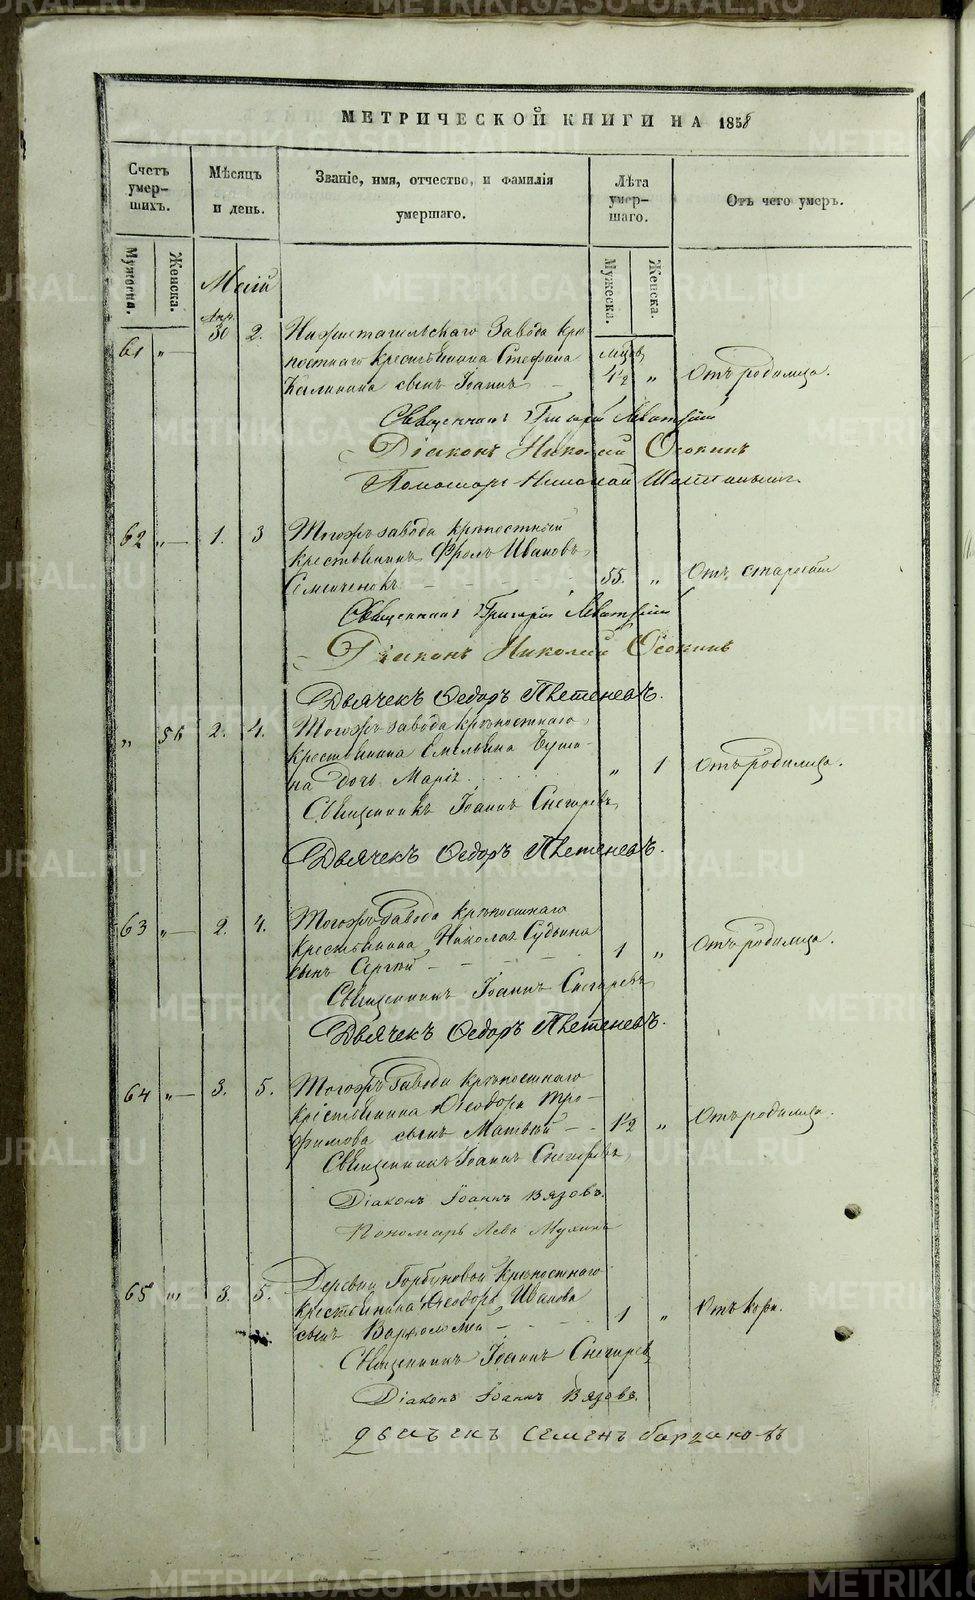 МЕТРИЧЕСКОЙ КНИГИ НА 1858
Счетъ умер-шихъ.
Мѣсяцъ и день.
Званіе, имя, отчество, и фамилія умершаго.
Лѣта умер-шаго.
Отъ чего умеръ.
Мужеска. Женска.
Мужеска. Женска.
Маій
Апр.
61 " 30 2. Нижнетагильскаго Завода крѣ-
постнаго крестьянина Стефана мѣсяц.
Калинина сынъ Іоаннъ 1/2 " Отъ родимца.
Священникъ Григорій Левитскій
Діаконъ Николай Осокинъ
Пономарь Николай
62 " 1. 3 Тогожъ завода крѣпостный
крестьянинъ Фролъ Ивановъ
55. " Отъ старости
Священникъ Григорій Левитскій
Діаконъ Николай Осокинъ
Дьячекъ Ѳедоръ Пѣтеневъ.
" 56 2. 4. Тогожъ завода крѣпостнаго
крестьянина Емельяна
на дочь Марія " 1 отъ родимца.
Священникъ Іоаннъ Снегиревъ
Дьячекъ Ѳедоръ Пѣтеневъ.
63 " 2. 4. Тогожъ Завода крѣпостнаго
крестьянина Николая Судьина
сынъ Сергій 1 " Отъ родимца.
Священникъ Іоаннъ Снегиревъ
Дьячекъ Ѳедоръ Пѣтеневъ.
64 " 3. 5. Тогожъ Завода крѣпостнаго
крестьянина Ѳеодора Тро-
фимова сынъ Матвѣй 1/2 " Отъ родимца.
Священникъ Іоаннъ Снегиревъ
Діаконъ Іоаннъ Вязовъ.
Пономарь Левъ Мухинъ
65 " 3. 5. Деревни Горбуновой Крѣпостнаго
крестьянина Ѳеодора Иванова
сынъ Варѳоломей 1 " Отъ кори.
Священникъ Іоаннъ Снегирев
Діаконъ Іоаннъ Вязовъ.
дьячекъ семенъ
METRIKI.GASO-URAL.RU